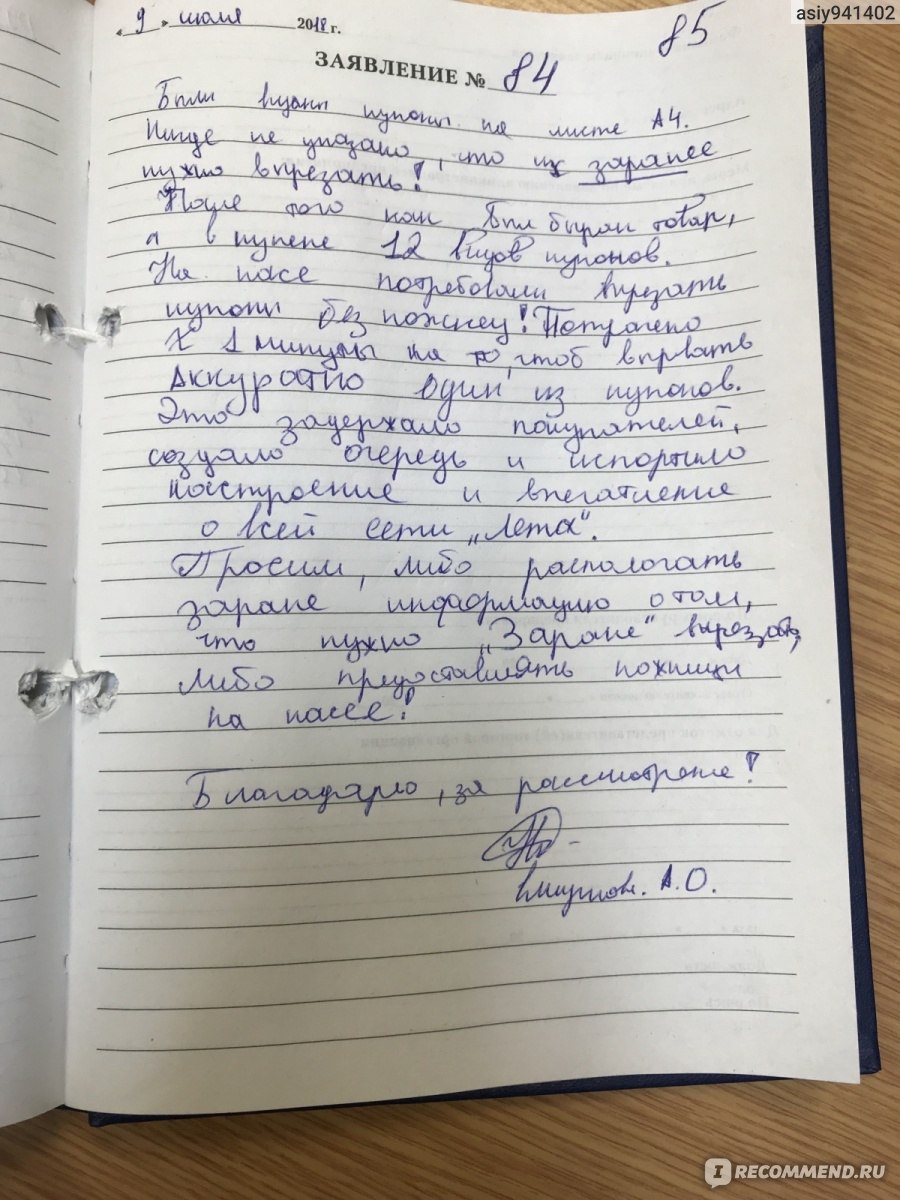 asiy941402
« 9 » июля 2018 г.
85
ЗАЯВЛЕНИЕ № 84
Были купоны на листе А4.
Нигде не указано, что их заранее
нужно вырезать!
После того как был выбран товар,
а в купене 12 видов купонов.
На касе потребовали вырезать
купоны без ножниц! Потрачено
1 минуты на то, чтоб вырвать
Аккуратно один из купонов.
Это задержало покупателей,
создало очередь и испортило
настроение и впечатление
о всей сети „Лета".
Просим, либо распологать
заране информацию о том,
что нужно „Заране" вырезать,
либо предоставлять ножници
на кассе!
Благодарю, за рассмотрение!
А.О.
IRECOMMEND.RU